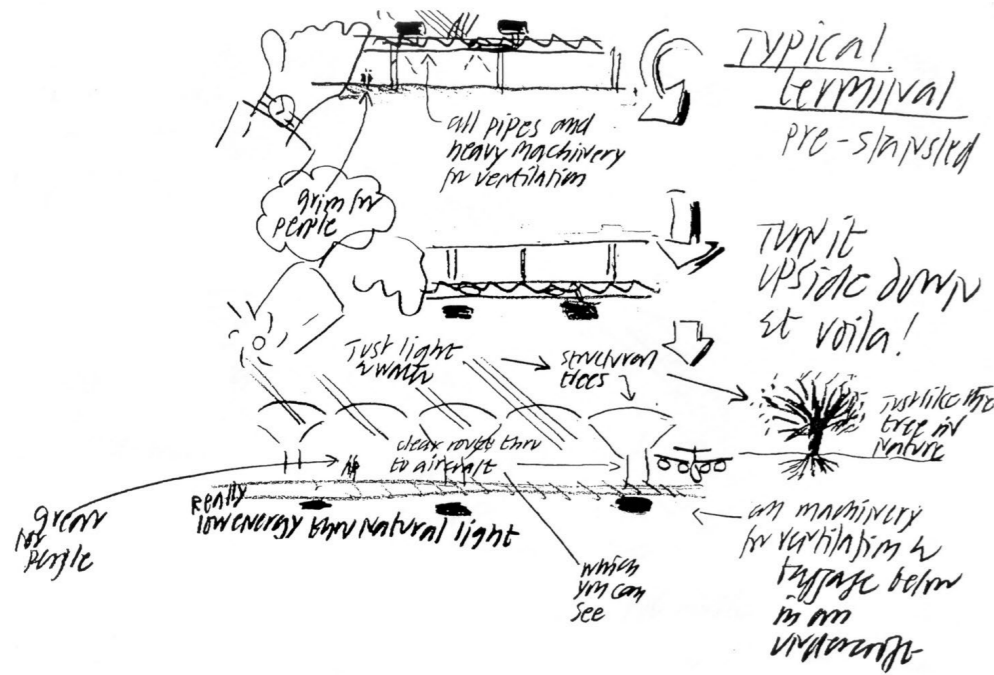 Typical
terminal
pre-stansted
all pipes and
heavy machinery
for ventilation
grim for
people
Turn it
upside down
et voila!
Just light
structural
trees
Just like the
tree in
Nature
clear route thru
to aircraft
great
for
people
Really
low energy thru Natural light
which
you can
see
all machinery
for ventilation &
baggage below
in an
undercroft